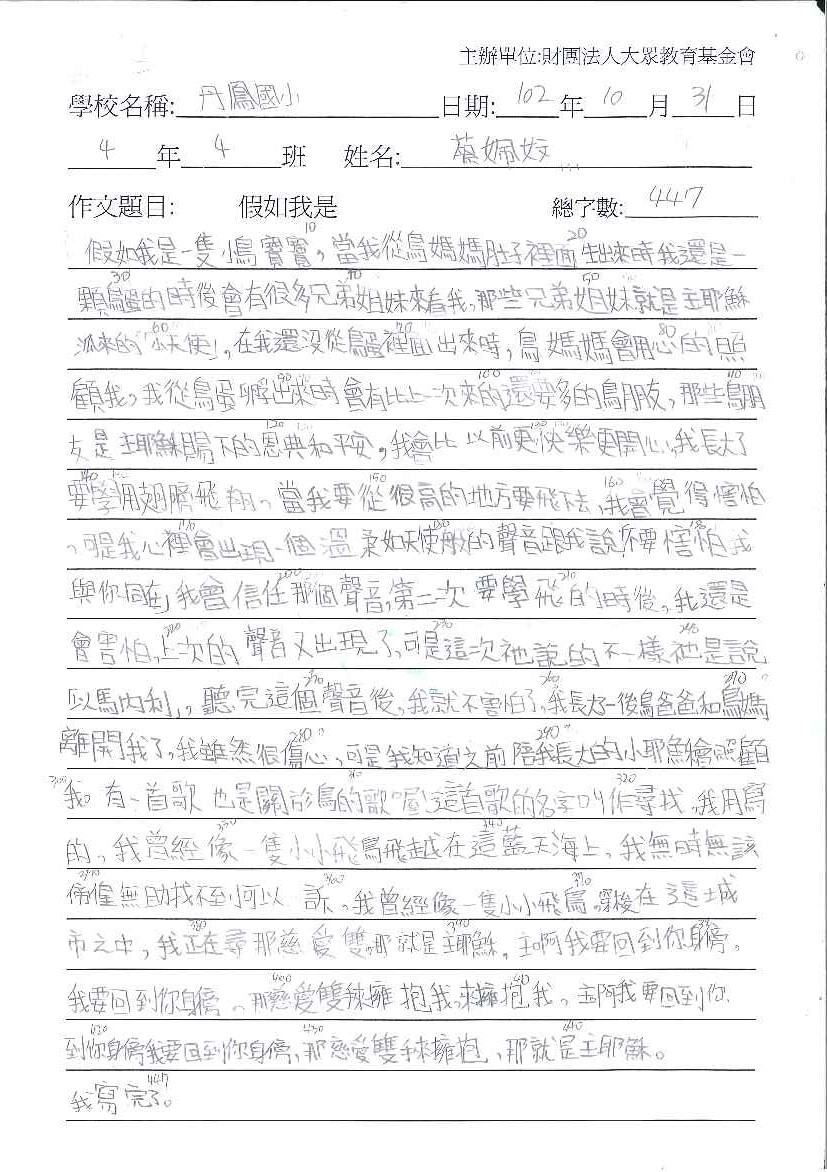 主辦單位:財團法人大眾教育基金會
學校名稱: 丹鳳國小 日期: 102 年 10 月 31 日
4 年 4 班 姓名: 蔡姵妏
作文題目: 假如我是 總字數: 447
假如我是一隻小鳥寶寶,當我從鳥媽媽肚子裡面生出來時我還是一
顆鳥蛋的時後會有很多兄弟姐妹來看我,那些兄弟姐妹就是主耶穌
派來的「小天使」,在我還沒從鳥蛋裡面出來時,鳥媽媽會用心的照
顧我,我從鳥蛋孵出來時會有比上一次來的還要多的鳥朋友,那些鳥朋
友是主耶穌賜下的恩典和平安,我會比以前更快樂更開心,我長大了
要學用翅膀飛翔。當我要從很高的地方要飛下去,我會覺得害怕
,可是我心裡會出現一個溫柔如天使般的聲音跟我說「不要害怕我
與你同在」我會信任那個聲音,第二次要學飛的時後,我還是
會害怕,上次的聲音又出現了,可是這次祂說的不一樣祂是說
「以馬內利」,聽完這個聲音後,我就不害怕了,我長大後鳥爸爸和鳥媽
離開我了,我雖然很傷心,可是我知道之前陪我長大的小耶穌會照顧
我。有一首歌也是關於鳥的歌喔!這首歌的名字叫作尋找,我用寫
的,我曾經像一隻小小飛鳥飛越在這藍天海上,我無時無
無助找不到可以 訴,我曾經像一隻小小飛鳥,穿梭在這城
市之中,我正在尋那慈愛雙,那就是主耶穌。主啊我要回到你身旁。
我要回到你身旁,那慈愛雙手來擁抱我,來擁抱我,主阿我要回到你
到你身旁我要回到你身旁,那慈愛雙手來擁抱,那就是主耶穌。
我寫完了。